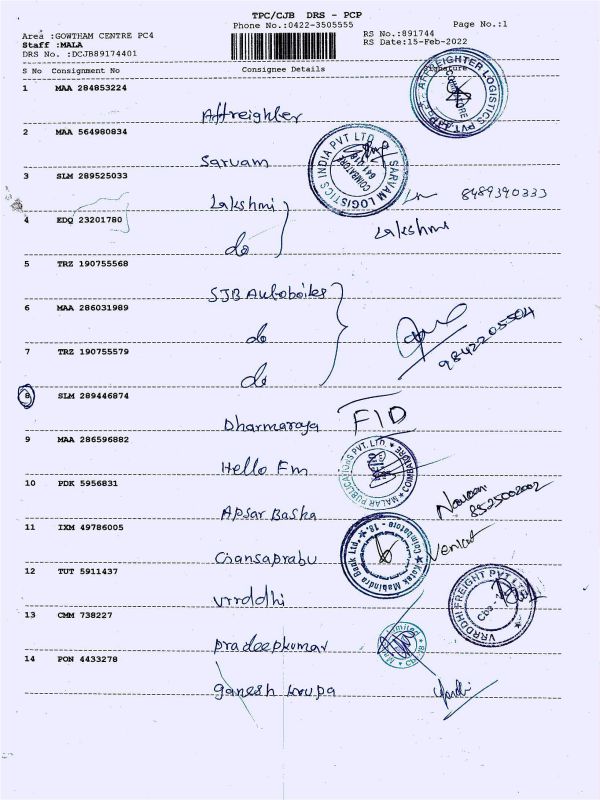 TPC/CJB DRS - PCP
Phone No.:0422-3505555 Page No.:1
Area :GOWTHAM CENTRE PC4 RS No.:891744
Staff :MALA RS Date:15-Feb-2022
DRS No. :DCJB89174401
S No Consignment No Consignee Details Signature
1 MAA 284853224
Affreighter
AFFREIGHTER LOGISTICS PVT LTD COIMBATORE
2 MAA 564980834
Sarvam
SARVAM LOGISTICS INDIA PVT LTD COIMBATORE 641 018
3 SLM 289525033
Lakshmi 8489390333
4 EDQ 23201780
do Lakshmi
5 TRZ 190755568
SJB Autoboiles
6 MAA 286031989
do 9842205504
7 TRZ 190755579
do
8 SLM 289446874
Dharmaraja FID
9 MAA 286596882
Hello Fm
MALAR PUBLICATIONS PVT. LTD. COIMBATORE
10 PDK 5956831
Apsar Basha Naveen 8525002002
11 IXM 49786005
Gansaprabu Venkat
Kotak Mahindra Bank Ltd., Coimbatore - 18.
12 TUT 5911437
Vrrddhi
VRRDDHI FREIGHT PVT LTD Cbe
13 CMM 738227
Pradeepkumar
Limited
14 PON 4433278
Ganesh krupa